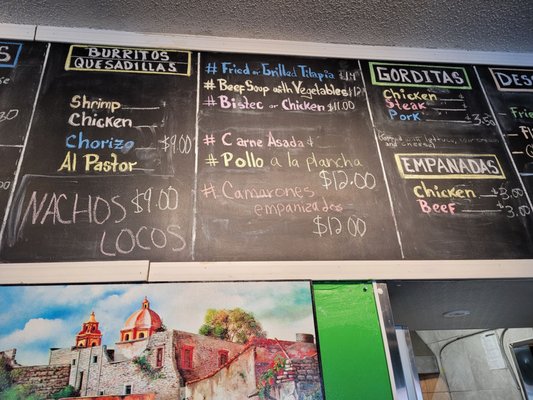 BURRITOS
QUESADILLAS
Shrimp
Chicken
Chorizo $9.00
Al Pastor
NACHOS $9.00
LOCOS
# Fried or Grilled Tilapia $14
# Beef Soup with Vegetables $12
# Bistec or Chicken $11.00
# Carne Asada &
# Pollo a la plancha
$12.00
# Camarones
empanizados
$12.00
GORDITAS
Chicken
Steak
Pork 3.50
EMPANADAS
Chicken $3.00
Beef 3.00
DES